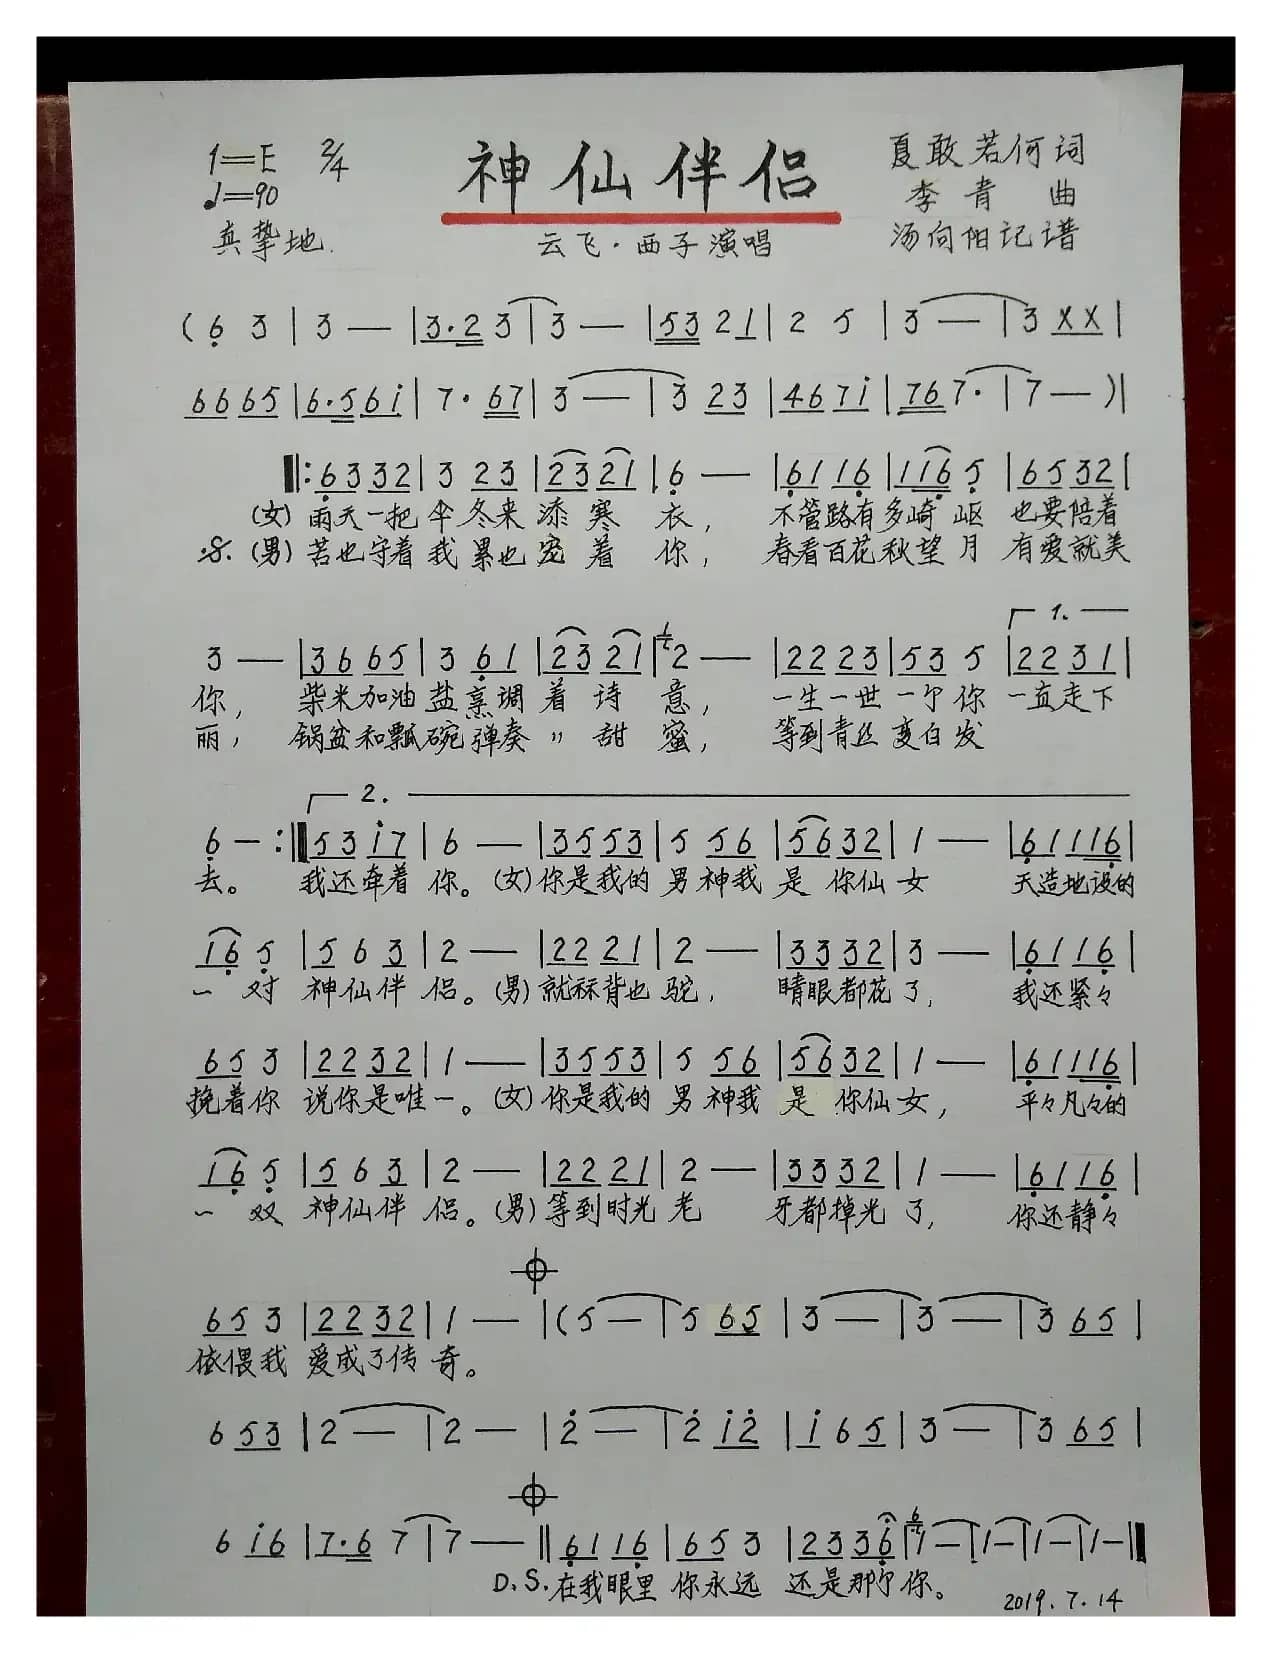 1=E 2/4
♩=90
真挚地.
神仙伴侣
云飞·西子演唱
夏敢若何词
李青 曲
汤向阳记谱
( 6̣ 3 | 3 — | 3·2 3 | 3 — | 53 2 1 | 2 5 | 3 — | 3 XX |
66 65 | 6·5 6i | 7· 67 | 3 — | 3 23 | 46 7i | 76 7· | 7 — ) |
‖: 6̣3 32 | 3 23 | 23 21 | 6̣ — | 6̣1 16̣ | 116̣ 5̣ | 65 32 |
(女) 雨天一把 伞 冬来 添 寒 衣, 不管路有多崎 岖 也要陪着
𝄋. (男) 苦也守着 我 累也 宠 着 你, 春看百花秋望 月 有爱就美
1.
3 — | 36 65 | 3 6̣1 | 23 21 | 2 — | 22 23 | 53 5 | 22 31 |
你, 柴米加油 盐 烹调 着 诗 意, 一生一世 一个 你 一直走下
丽, 锅盆和瓢碗 弹奏 〃 甜 蜜, 等到青丝 变白 发
2.
6̣ — :‖ 53 i7 | 6 — | 35 53 | 5 56 | 56 32 | 1 — | 6̣1 116̣ |
去。 我还牵着 你。(女)你是我的 男 神我 是 你仙 女 天造地设的
16̣ 5̣ | 5 6 3 | 2 — | 22 21 | 2 — | 33 32 | 3 — | 6̣1 16̣ |
一 对 神仙伴 侣。(男)就秣背也 驼, 睛眼都花 了, 我还紧々
65 3 | 22 32 | 1 — | 35 53 | 5 56 | 56 32 | 1 — | 6̣1 116̣ |
挽着你 说你是唯 一。(女)你是我的 男 神我 是 你仙 女, 平々凡々的
16̣ 5̣ | 5 6 3 | 2 — | 22 21 | 2 — | 33 32 | 1 — | 6̣1 16̣ |
一 双 神仙伴 侣。(男)等到时光 老 牙都掉光 了, 你还静々
𝄌
65 3 | 22 32 | 1 — | (5 — | 5 65 | 3 — | 3 — | 3 65 |
依偎我 爱成了传 奇。
6 53 | 2 — | 2 — | 2̇ — | 2̇ i2̇ | i 6 5 | 3 — | 3 65 |
𝄌
6 i6 | 7·6 7 | 7 — ‖ 6̣1 16̣ | 65 3 | 23 36̣ | 1 — | 1 — | 1 — | 1 — ‖
D.S. 在我眼里 你永远 还是那个 你。
2019.7.14